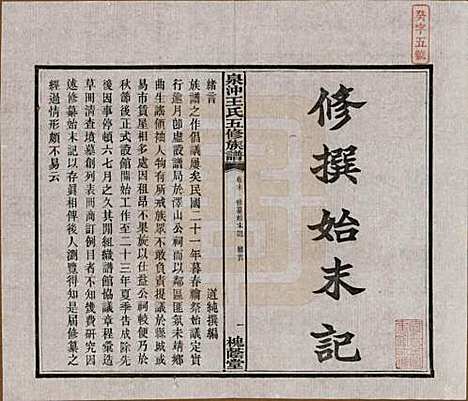 癸字五號
修撰始末記
泉沖王氏五修族譜
卷末　修纂始末記　緒言
一　槐蔭堂
緒言
道純撰編
族譜之作倡議屢矣民國二十一年暮春禴祭始議定實
行進月卽虛設譜局於澤山公祠而以鄰區匪氛未靖鄉
曲生謠傾擋人物有所戒族眾不敢負責提議於縣城貿
易市賃屋相多處因租昂不果族以仕益公祠較便乃於
秋節後正式設館開始工作至二十三年夏季告成除先
後因事停頓六七月之久其間議譜館議章程彙造
草冊清查墳墓創列表冊等不知幾費研究因
述修纂始末記以存眞相俾後人瀏覽得知是届修纂之
經過情形頗不易云